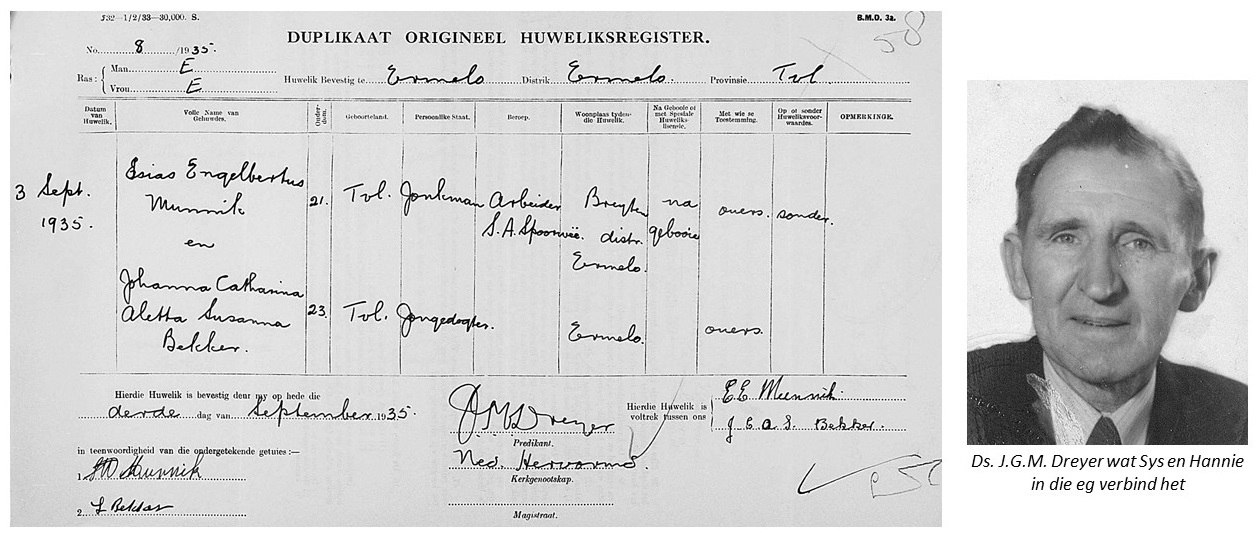 532—1/2/33—30,000. S.
B.M.D. 3a.
58
No. 8 /1935.
DUPLIKAAT ORIGINEEL HUWELIKSREGISTER.
Ras: Man E
Vrou E
Huwelik Bevestig te Ermelo Distrik Ermelo. Provinsie Tvl
Datum van Huwelik.
Volle Name van Gehuwdes.
Ouderdom.
Geboorteland.
Persoonlike Staat.
Beroep.
Woonplaas tydens die Huwelik.
Na Geboole of met Spesiale Huweliks-lisensie.
Met wie se Toestemming.
Op of sonder Huweliksvoorwaardes.
OPMERKINGE.
3 Sept. 1935.
Esias Engelbertus
Munnik
21. Tvl. Jonkman Arbeider S.A. Spoorweë. Breyten distr. Ermelo. na gebooie ouers. sonder.
en
Johanna Catharina
Aletta Susanna
Bekker.
23. Tvl. Jongedogter. Ermelo. ouers.
Hierdie Huwelik is bevestig deur my op hede die
derde dag van September 1935.
J.G.M. Dreyer
Predikant.
Ned. Hervormd.
Kerkgenootskap.
Magistraat.
Hierdie Huwelik is voltrek tussen ons
E.E. Munnik.
J C A S Bekker.
in teenwoordigheid van die ondergetekende getuies:—
1. Munnik
2. Bekker
Ds. J.G.M. Dreyer wat Sys en Hannie
in die eg verbind het